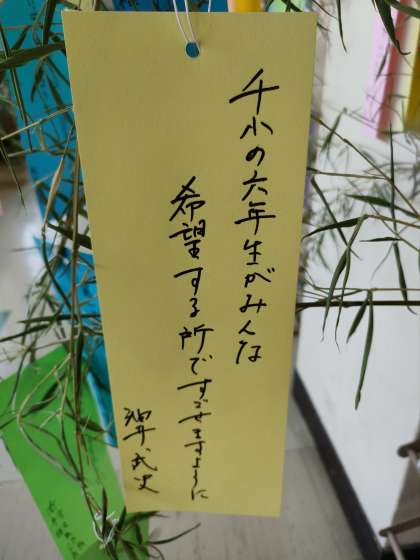 千小の六年生がみんな
希望する所ですごせますように
油井武史